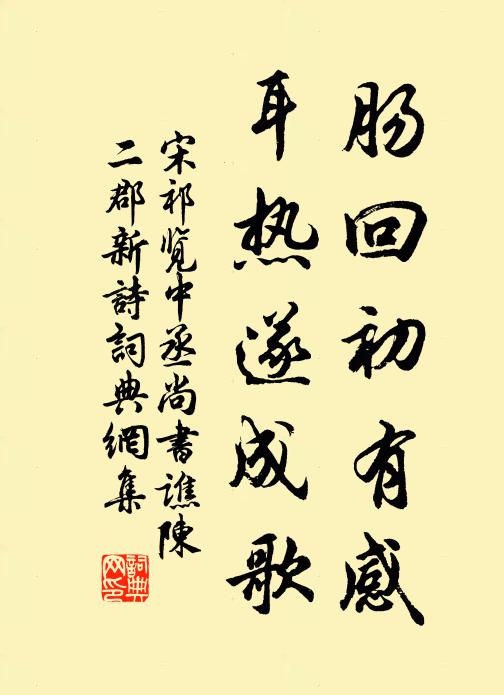 肠回初有感
耳热遂成歌
宋祁览中丞尚书谯陳
二郡新詩詞典網集
詞典网印